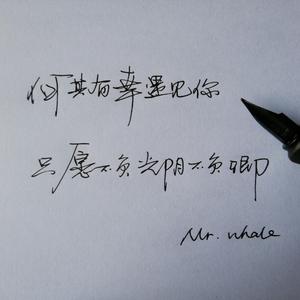 何其有幸遇见你
只愿不负光阴不负卿
Mr. whale